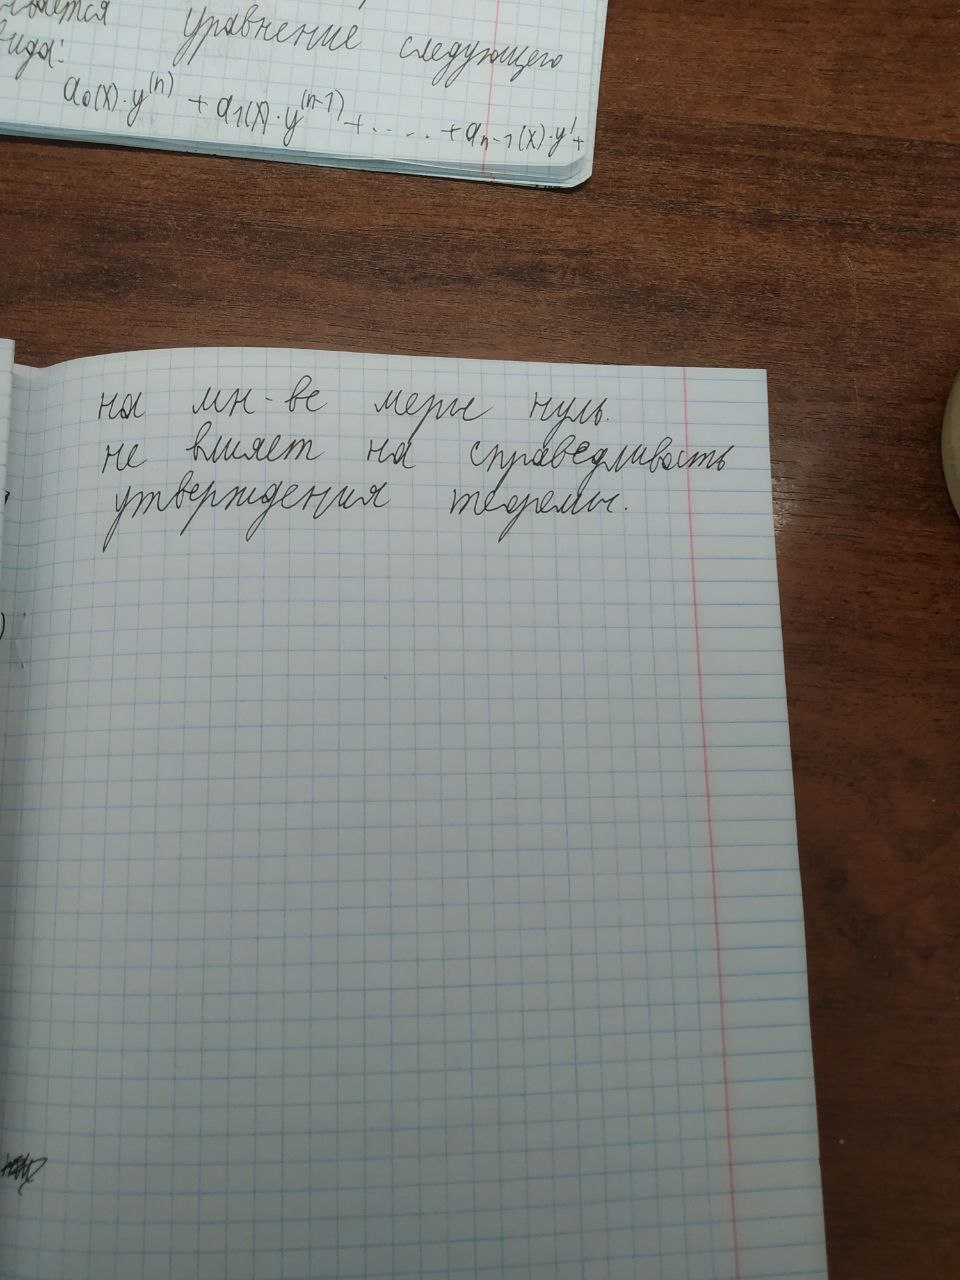 уравнение следующего
вида:
a₀(x)·y⁽ⁿ⁾ + a₁(x)·y⁽ⁿ⁻¹⁾ + ..... + aₙ₋₁(x)·y' +
на мн-ве меры нуль.
не влияет на справедливость
утверждения теоремы.